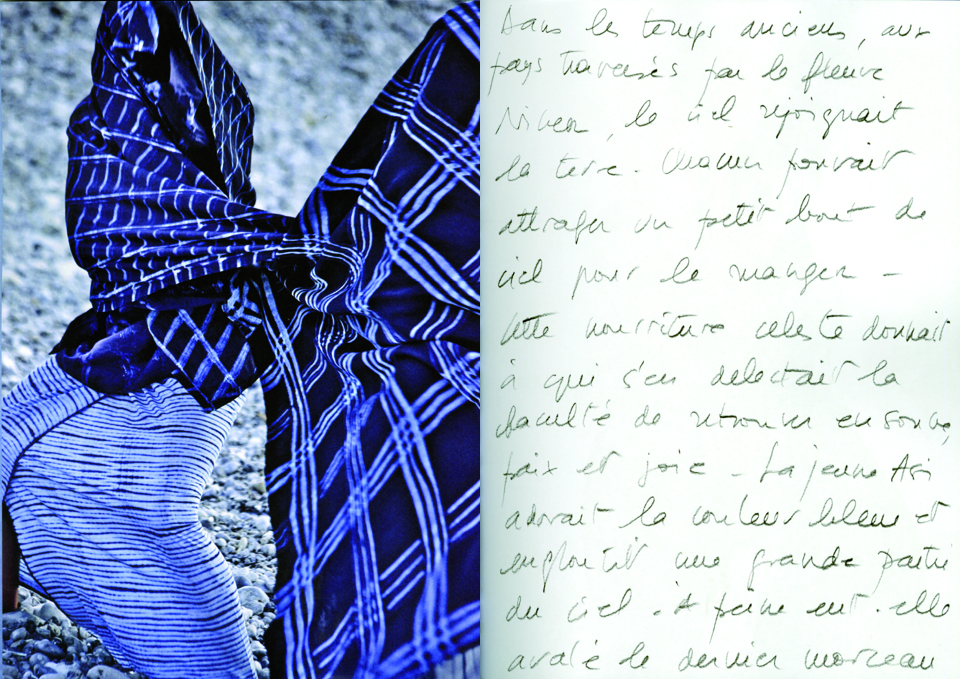 Dans les temps anciens, aux
pays traversés par le fleuve
Niger, le ciel rejoignait
la terre. Chacun pouvait
attraper un petit bout de
ciel pour le manger -
cette nourriture celeste donnait
à qui s'en delectait la
faculté de retrouver en songe,
paix et joie - La jeune Asi
adorait la couleur bleue et
engloutit une grande partie
du ciel. A peine eut-elle
avalé le dernier morceau